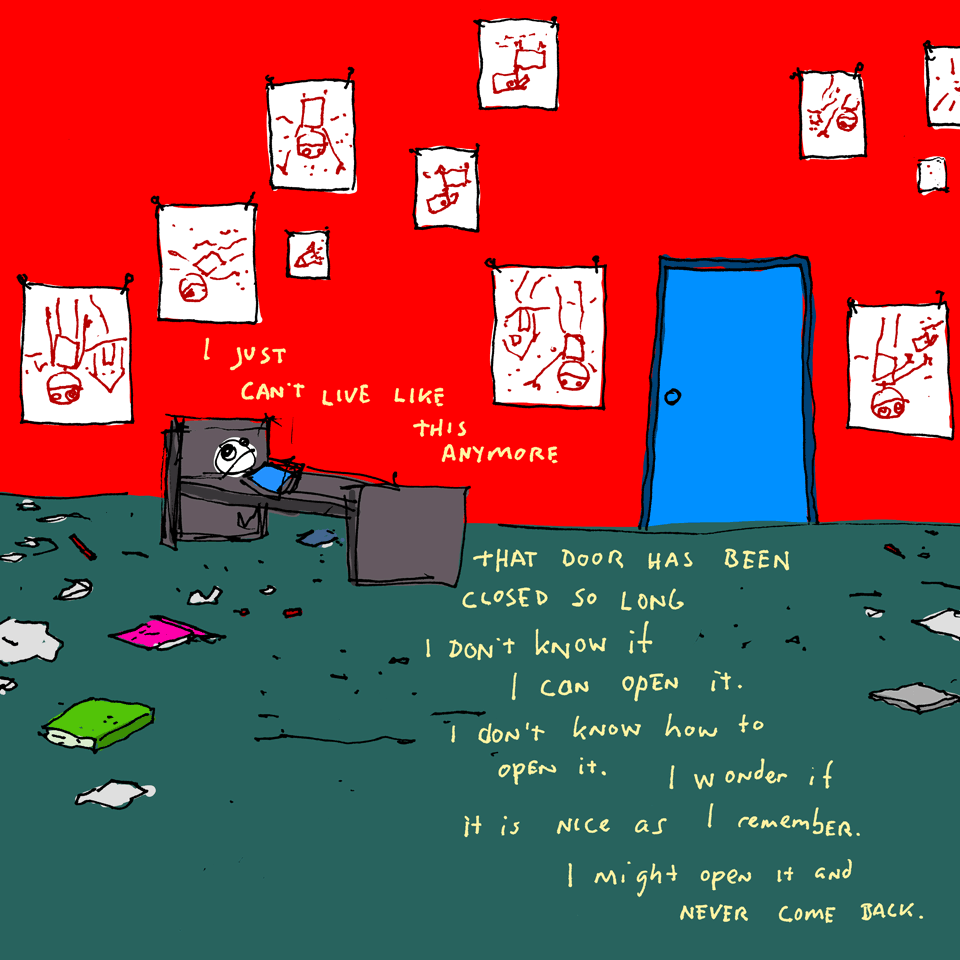 I JUST
CAN'T LIVE LIKE
THIS
ANYMORE
THAT DOOR HAS BEEN
CLOSED SO LONG
I DON'T KNOW if
I CAN OPEN it.
I don't know how to
OPEN it. I wonder if
it is NICE as I remember.
I might open it and
NEVER COME BACK.